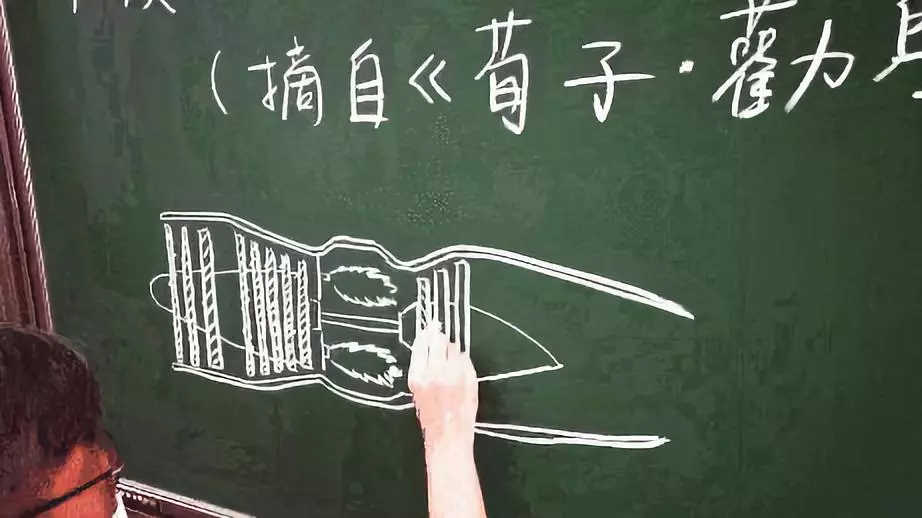 (摘自《荀子·勸